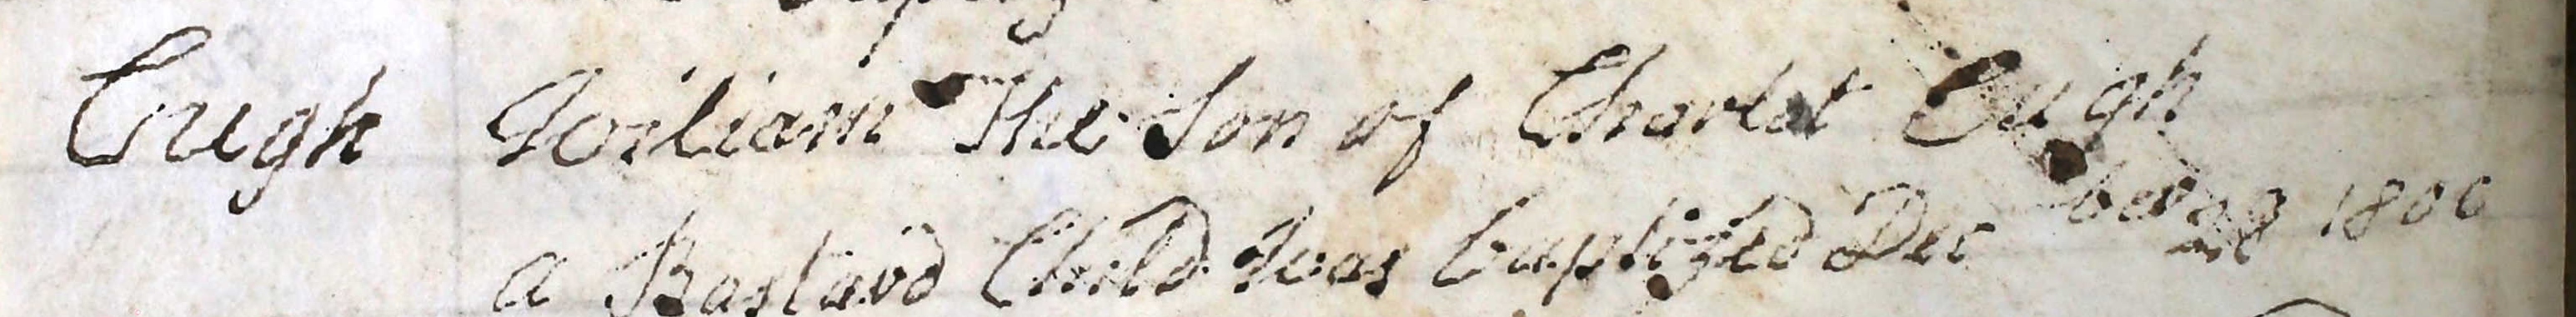 Cugh William The Son of Charlot Cugh
a Bastard Child Was baptized Dec ber 28 1800